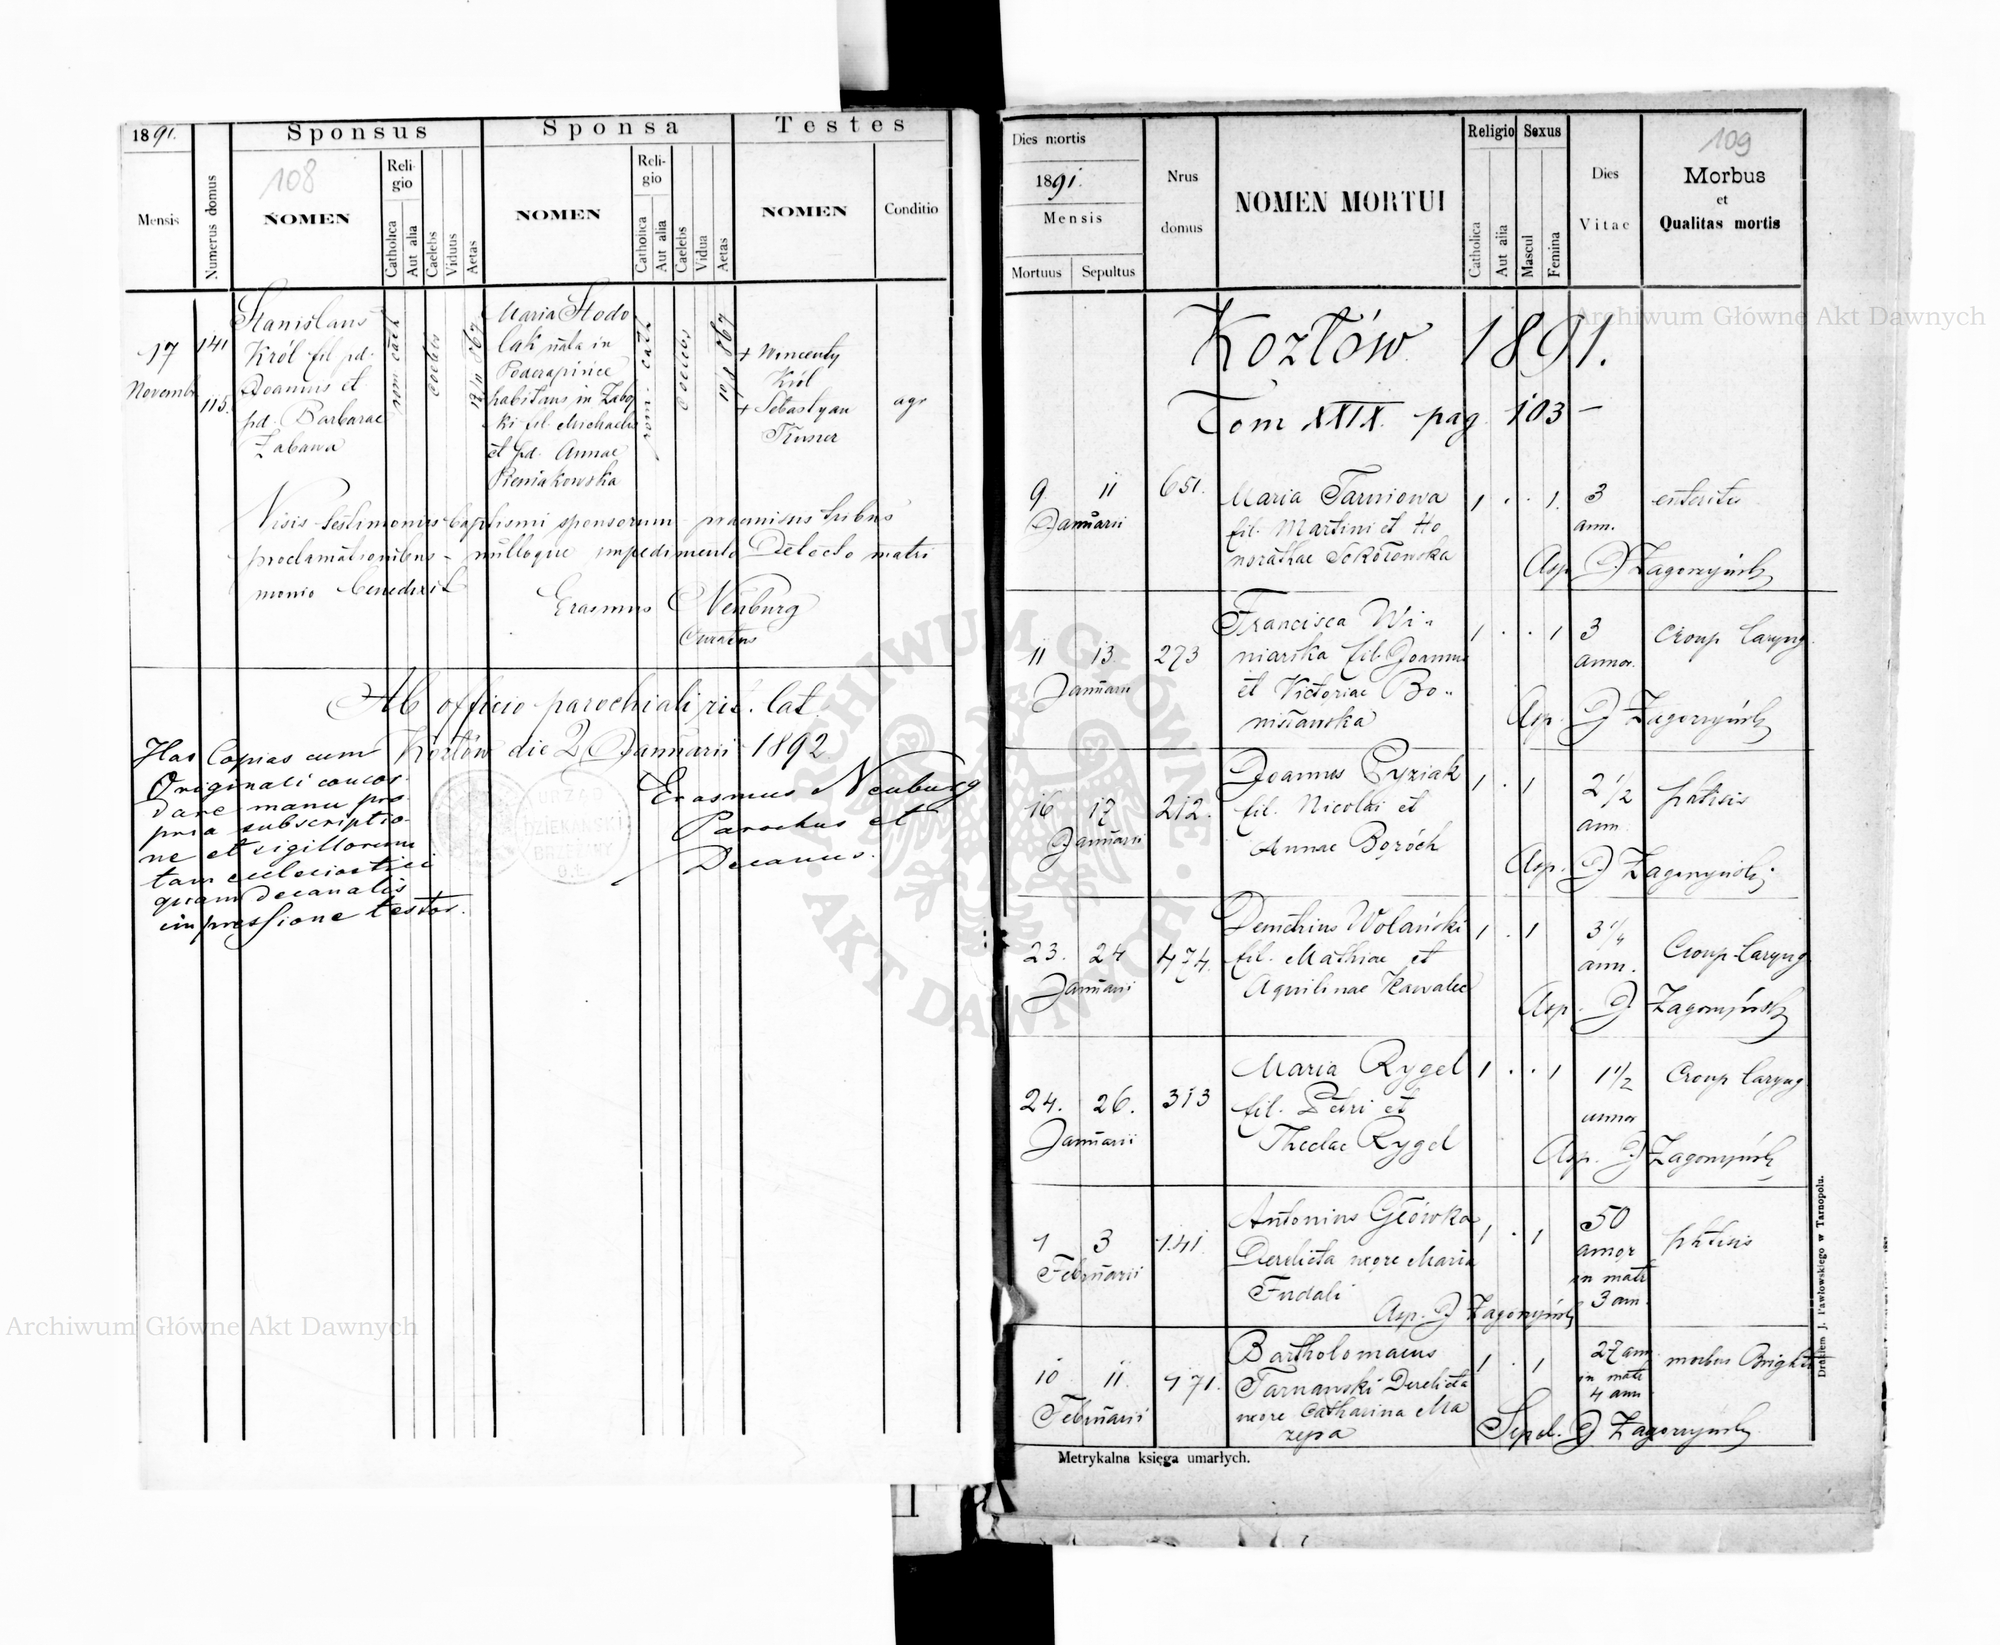 1891.
Sponsus
Sponsa
Testes
Mensis
Numerus domus
108
NOMEN
Religio
Catholica
Aut alia
Caelebs
Vidutus
Aetas
NOMEN
Religio
Catholica
Aut alia
Caelebs
Vidua
Aetas
NOMEN
Conditio
17
Novembr
141
115.
Stanislaus
Król fil pd.
Joannis et
pd. Barbarae
Żabawa
rom cath
coelebs
Maria Stodo
lak nata in
habitans in
ki fil. Michaelis
et pd. Annae
Pieniakowska
rom. cath
+ Wincenty
Król
+ Sebastyan
agr
Visis testimoniis baptismi sponsorum praemissis tribus
proclamationibus - nulloque impedimento Detecto matri
monio benedixit
Erasmus Neuburg
Curatus
Ab officio parochiali rit. lat.
Kozłów die 2 Januarii 1892
Has Copias cum
Originali concor
dare manu pro
pria subscriptio
ne et sigillorum
tam ecclesiastici
quam Decanalis
impressione testor.
Erasmus Neuburg
Parochus et
Decanus.
URZĄD
DZIEKAŃSKI
BRZEŻANY
O.Ł.
Dies mortis
1891.
Mensis
Mortuus
Sepultus
Nrus
domus
NOMEN MORTUI
Religio
Catholica
Aut alia
Sexus
Mascul
Femina
Dies
Vitae
109
Morbus
et
Qualitas mortis
Kozłów 1891.
Tom XXIX. pag. 103 -
9 11 651. Maria Tarniowa 1 . . 1. 3 enteritis
Januarii fil. Martini et Ho ann.
norathae Sokołowska
Asp. J Zagorzyński
Francisca Wi-
11 13. 273 niarska fil. Joannis 1 . . 1 3 Croup laryng.
Januarii et Victoriae Bo- annor.
nisławska
Asp. J Zagorzyński
Joannes Cyziak 1 . 1 2 1/2 phtisis
16 17 212. fil. Nicolai et ann.
Januarii Annae Boróch
Asp. J Zagorzyński
Demetrius Wolański 1 . 1 3 1/4 Croup laryng
23. 24 474. fil. Mathiae et ann.
Januarii Aquilinae Kawalec
Asp. J Zagorzyński
Maria Rygel 1 . . 1 1 1/2 Croup laryng.
24. 26. 313 fil. Petri et annor
Januarii Theclae Rygel
Asp. J Zagorzyński
Antonius Główka 1 . 1 50 phtisis
1 3 141. Derelicta uxore Maria annor
Februarii Fudali in matr
3 an.
Asp. J Zagorzyński
Bartholomaeus 1 . 1 27 ann morbus Brighti
10 11. 171. Tarnawski Derelicta in matr
Februarii uxore Catharina Ma 4 ann
zepa
Sepel. J Zagorzyński
Metrykalna księga umarłych.
Drukiem J. Pawłowskiego w Tarnopolu.
Archiwum Główne Akt Dawnych
Archiwum Główne Akt Dawnych
ARCHIWUM GŁÓWNE · AKT DAWNYCH ·